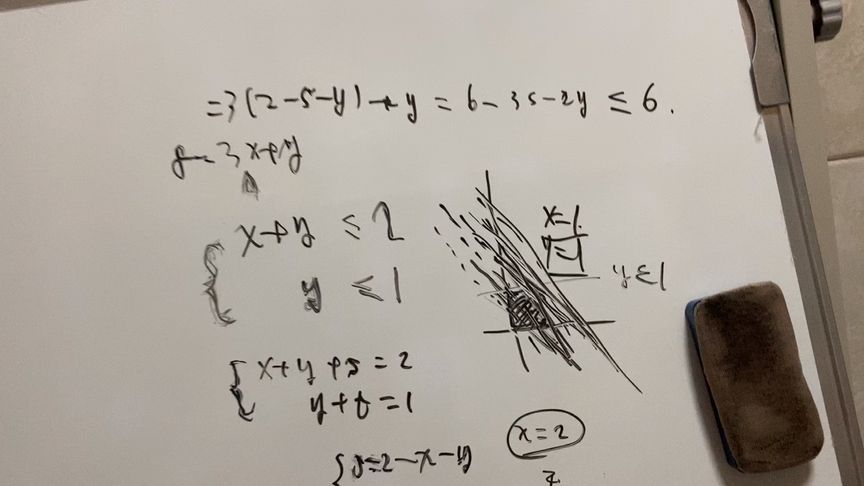 =3(2-s-y)+y = 6-3s-2y ≤ 6.
3x+y
x+y ≤ 2
y ≤ 1
x=1
y=1
y≤1
x+y+s=2
y+t=1
x=2
s=2-x-y